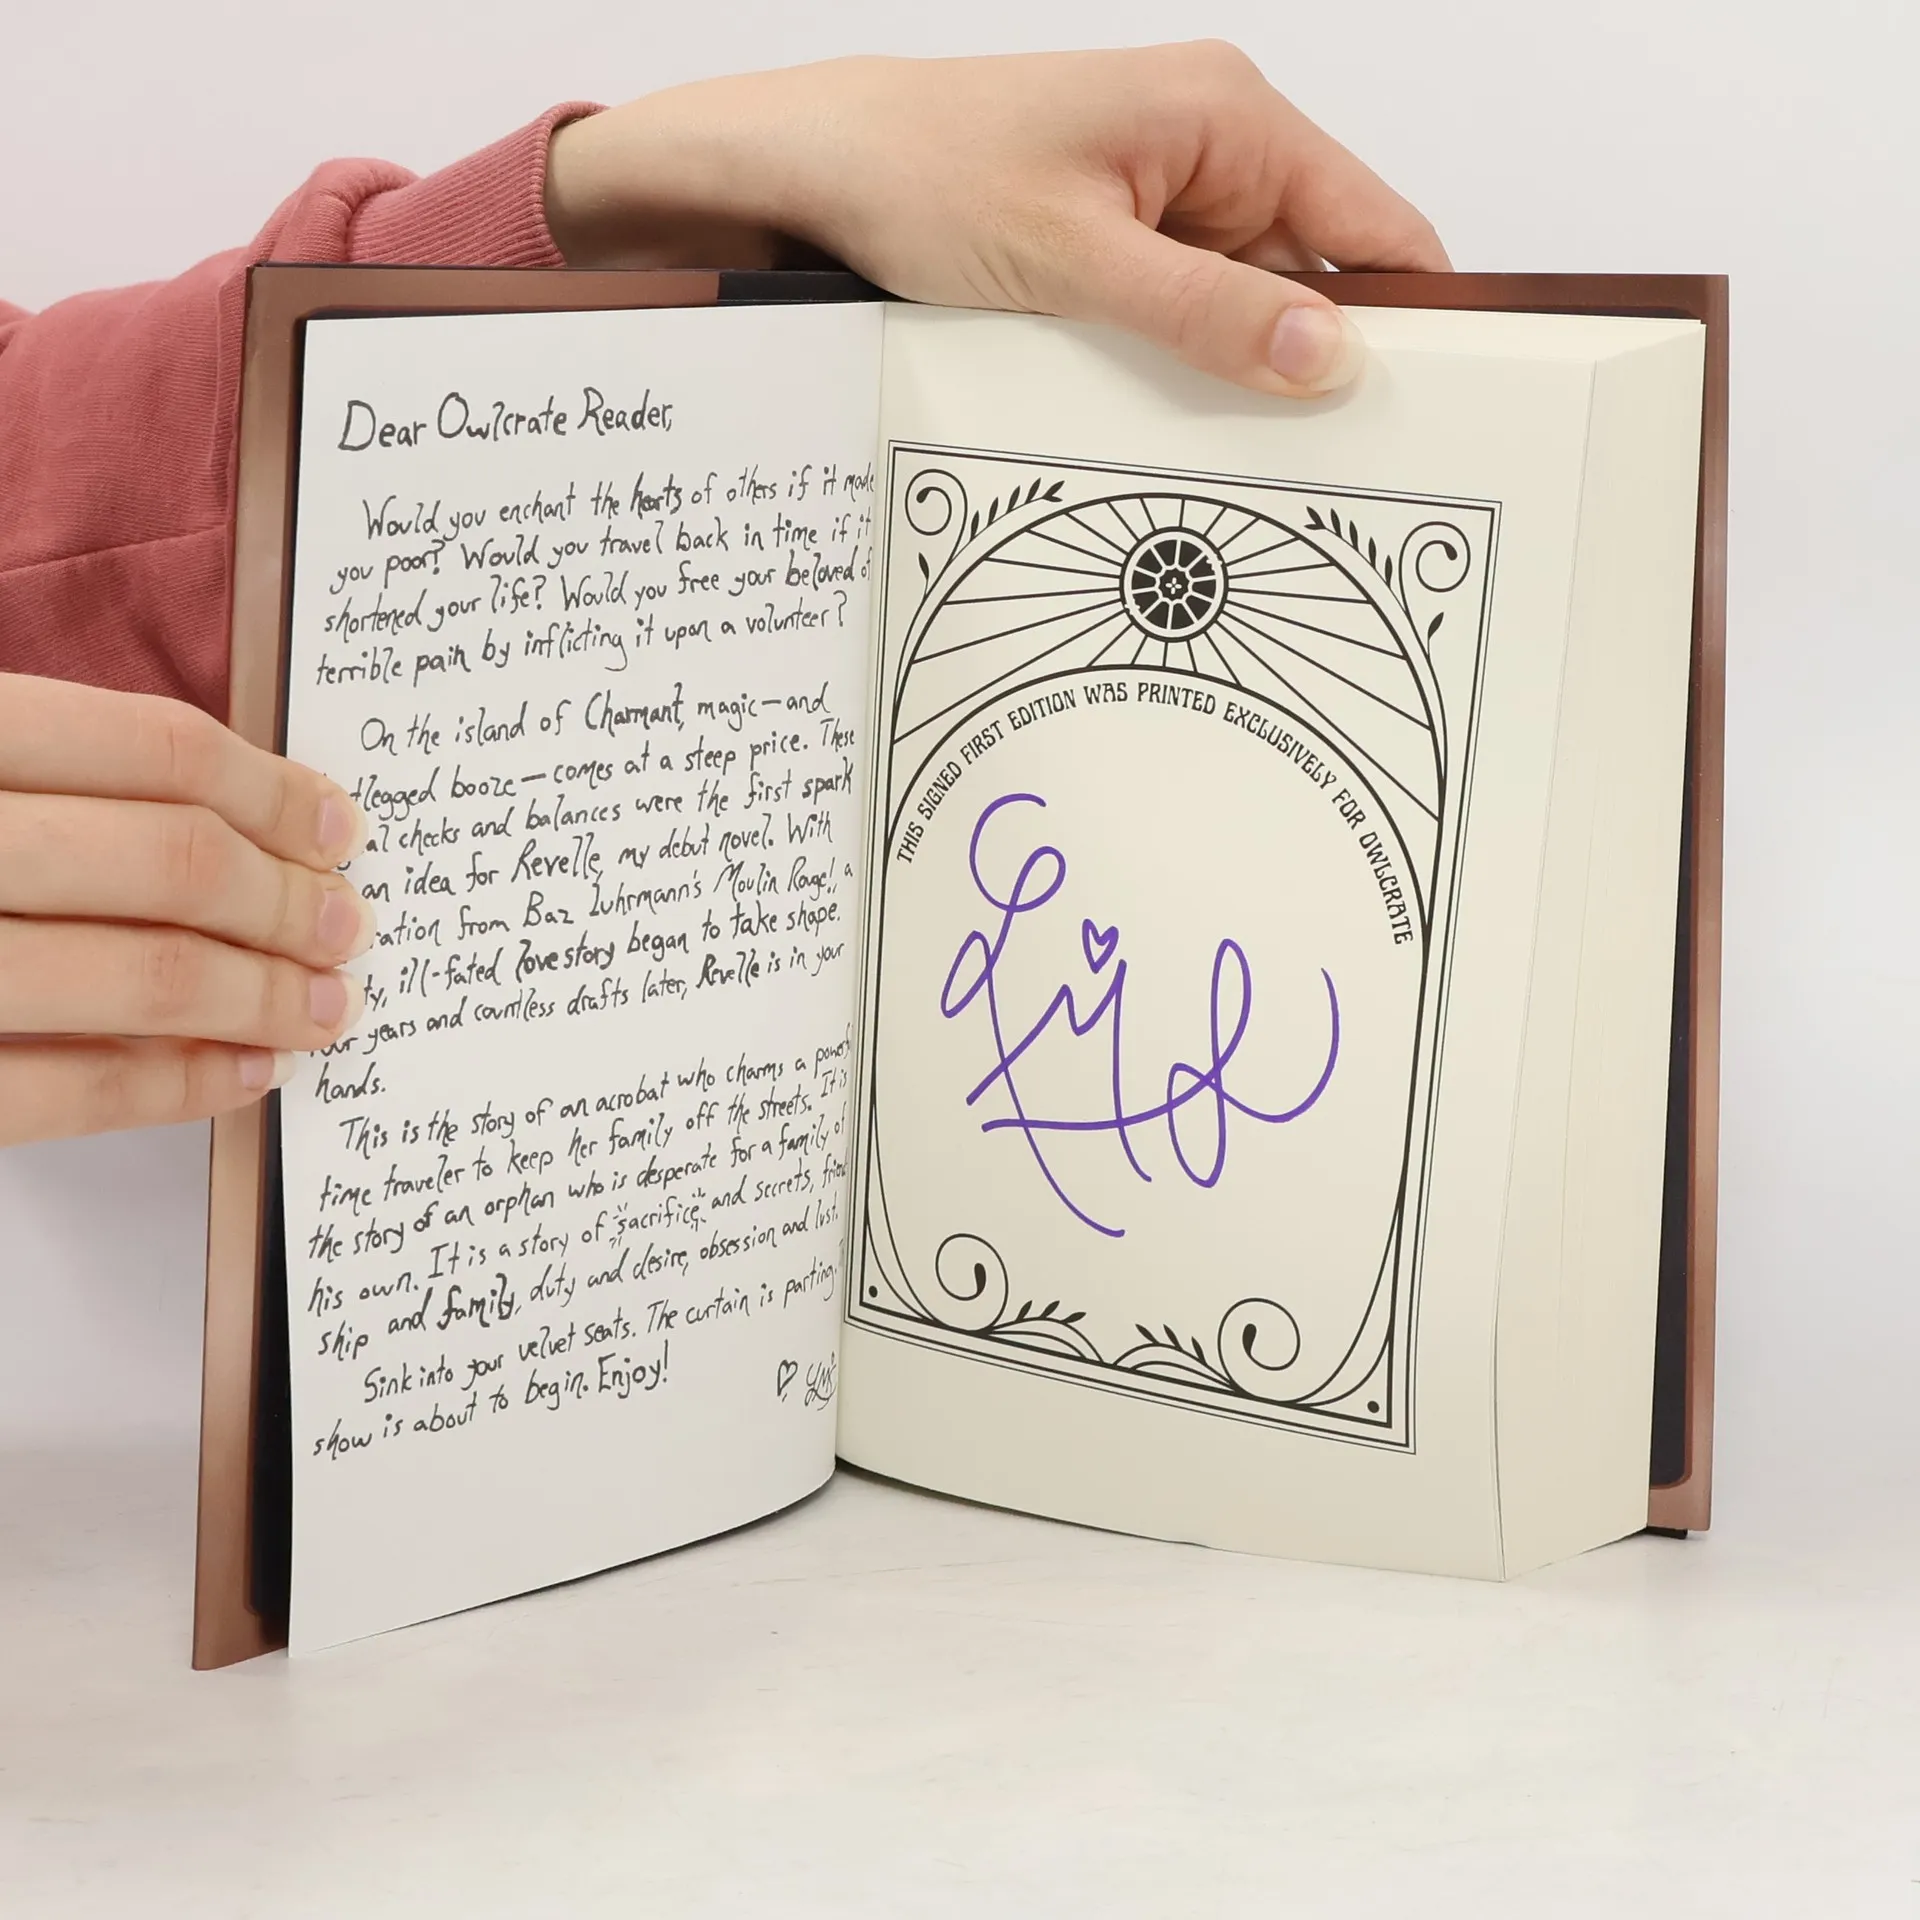 Dear Owlcrate Reader,
Would you enchant the hearts of others if it made
you poor? Would you travel back in time if it
shortened your life? Would you free your beloved of
terrible pain by inflicting it upon a volunteer?
On the island of Charmant, magic—and
tlegged booze—comes at a steep price. These
al checks and balances were the first spark
an idea for Revelle, my debut novel. With
ration from Baz Luhrmann's Moulin Rouge!, a
ty, ill-fated love story began to take shape.
our years and countless drafts later, Revelle is in your
hands.
This is the story of an acrobat who charms a powerf
time traveler to keep her family off the streets. It is
the story of an orphan who is desperate for a family of
his own. It is a story of sacrifice and secrets, friend
ship and family, duty and desire, obsession and lust.
Sink into your velvet seats. The curtain is parting.
show is about to begin. Enjoy!
THIS SIGNED FIRST EDITION WAS PRINTED EXCLUSIVELY FOR OWLCRATE